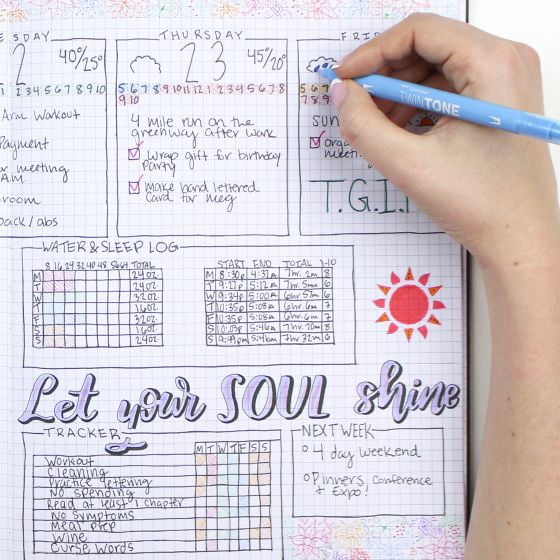 THURSDAY
FRI
2
40°/25°
23
45°/20°
1 2 3 4 5 6 7 8 9 10
5 6 7 8 9 10 11 12 1 2 3 4 5 6 7 8
9 10
5 6 7
7 8 9
Workout
Payment
meeting
room
back/abs
4 mile run on the
greenway after work
Wrap gift for birthday
party
Make hand lettered
card for Meg
SUN
T.G.I.
TWINTONE
WATER & SLEEP LOG
8 16 24 32 40 48 56 64 TOTAL
M 24oz.
T 24oz.
W 32oz.
T 16oz.
F 32oz.
S 16oz.
S 24oz.
START END TOTAL 1-10
M 8:30p 4:32a 7hr. 2m 8
T 9:27p 5:12a 7hr. 5m 6
W 9:34p 5:00a 6hr. 57m 6
T 10:35p 5:08a 6hr. 6m 7
F 10:35p 5:08a 6hr. 6m 7
S 10:03p 5:46a 8
S 9:49pm 5:46am 7hr. 32m 6
Let your SOUL shine
TRACKER
M T W T F S S
Workout
Cleaning
Practice lettering
No spending
Read at least 1 chapter
No symptoms
Meal prep
Wine
Curse words
NEXT WEEK
4 day weekend
Pinners Conference
& Expo!